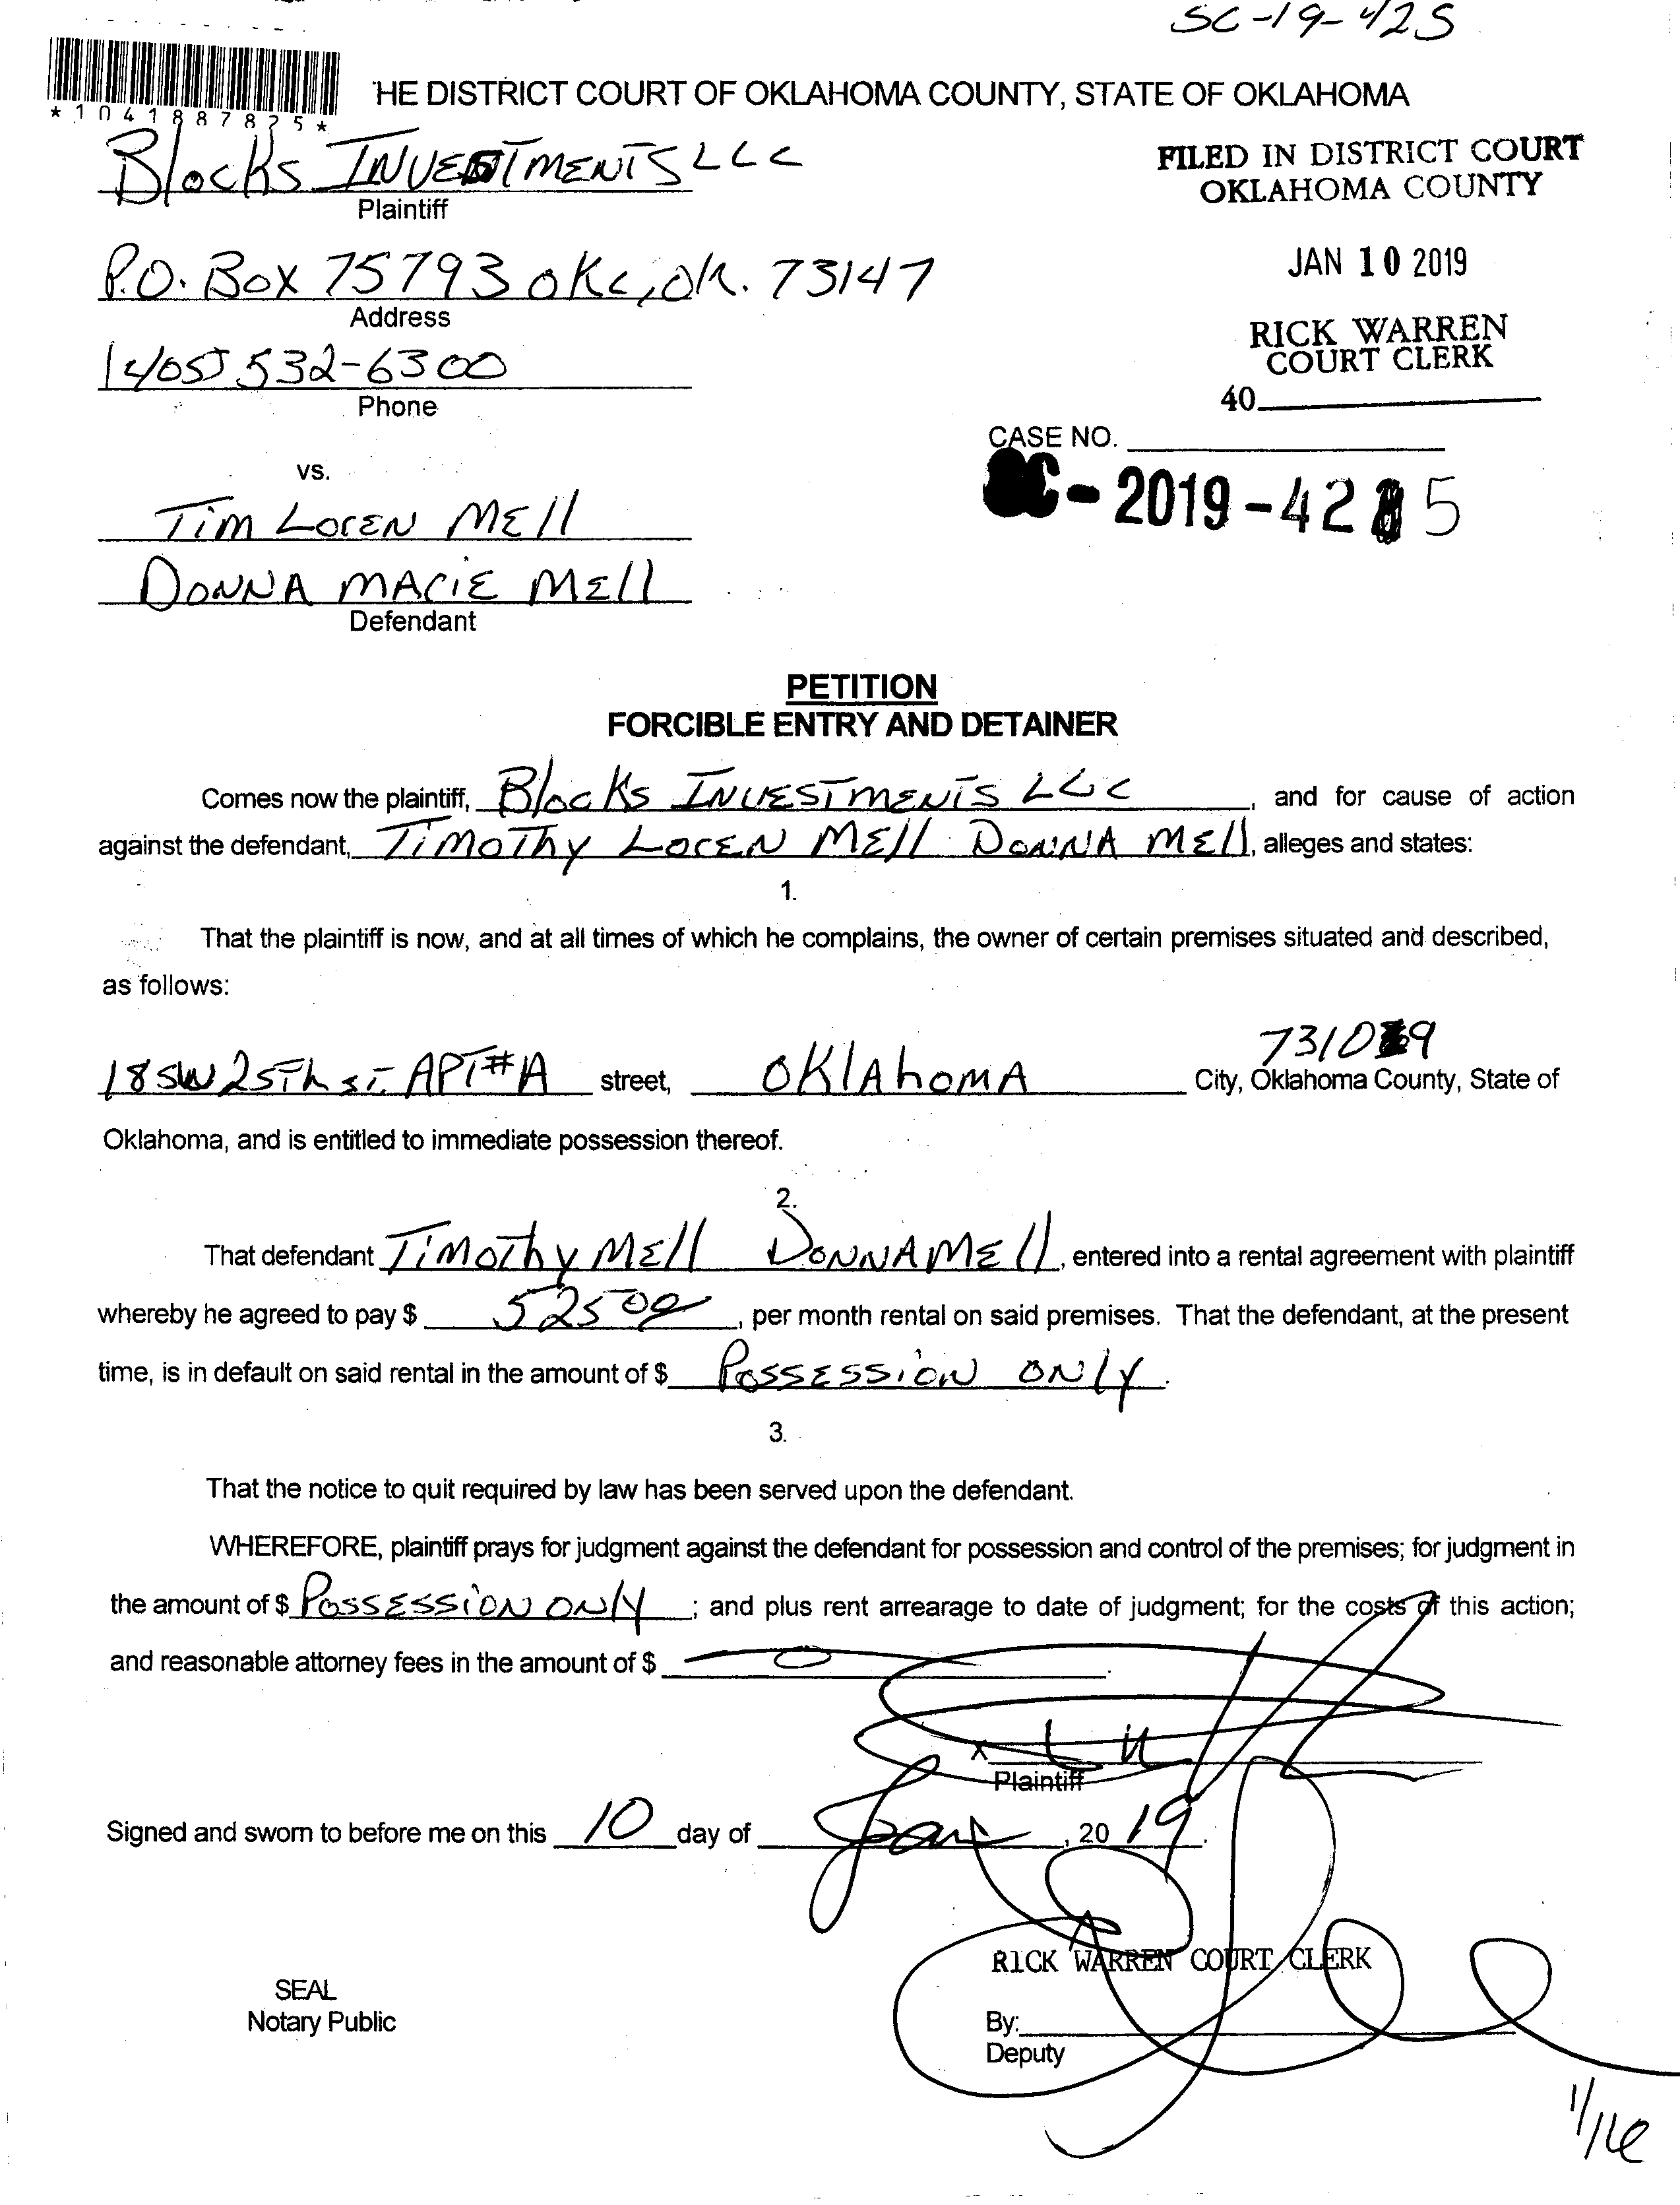 SC-19-425
*1041887825*
HE DISTRICT COURT OF OKLAHOMA COUNTY, STATE OF OKLAHOMA
Blocks INVESTMENTS LLC
Plaintiff
FILED IN DISTRICT COURT
OKLAHOMA COUNTY
P.O. Box 75793 OKC, OK. 73147
Address
JAN 10 2019
(405) 532-6300
Phone
RICK WARREN
COURT CLERK
40
CASE NO.
SC-2019-425
vs.
TiM LOREN MEll
DONNA MARIE MEll
Defendant
PETITION
FORCIBLE ENTRY AND DETAINER
Comes now the plaintiff, Blocks INVESTMENTS LLC, and for cause of action
against the defendant, TiMoThy LOREN MEll DONNA MEll, alleges and states:
1.
That the plaintiff is now, and at all times of which he complains, the owner of certain premises situated and described,
as follows:
73109
18 SW 25Th ST. APT#A street, OKlAhoMA City, Oklahoma County, State of
Oklahoma, and is entitled to immediate possession thereof.
2.
That defendant TiMoThy MEll DONNA MEll, entered into a rental agreement with plaintiff
whereby he agreed to pay $ 525 00, per month rental on said premises. That the defendant, at the present
time, is in default on said rental in the amount of $ POSSESSiON ONly.
3.
That the notice to quit required by law has been served upon the defendant.
WHEREFORE, plaintiff prays for judgment against the defendant for possession and control of the premises; for judgment in
the amount of $ POSSESSiON ONlY; and plus rent arrearage to date of judgment; for the costs of this action;
and reasonable attorney fees in the amount of $ 0.
x
Plaintiff
Signed and sworn to before me on this 10 day of Jan, 2019.
RICK WARREN COURT CLERK
SEAL
Notary Public
By:
Deputy
1/16